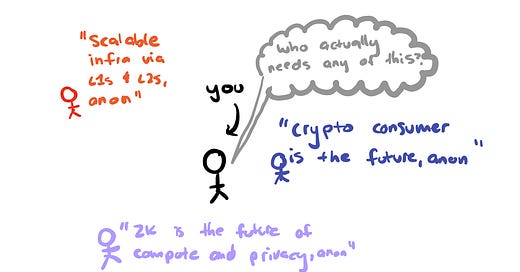 "Scalable
infra via
L1s & L2s,
anon"
who actually
needs any of this?
you
"crypto consumer
is the future, anon"
"ZK is the future of
compute and privacy, anon"